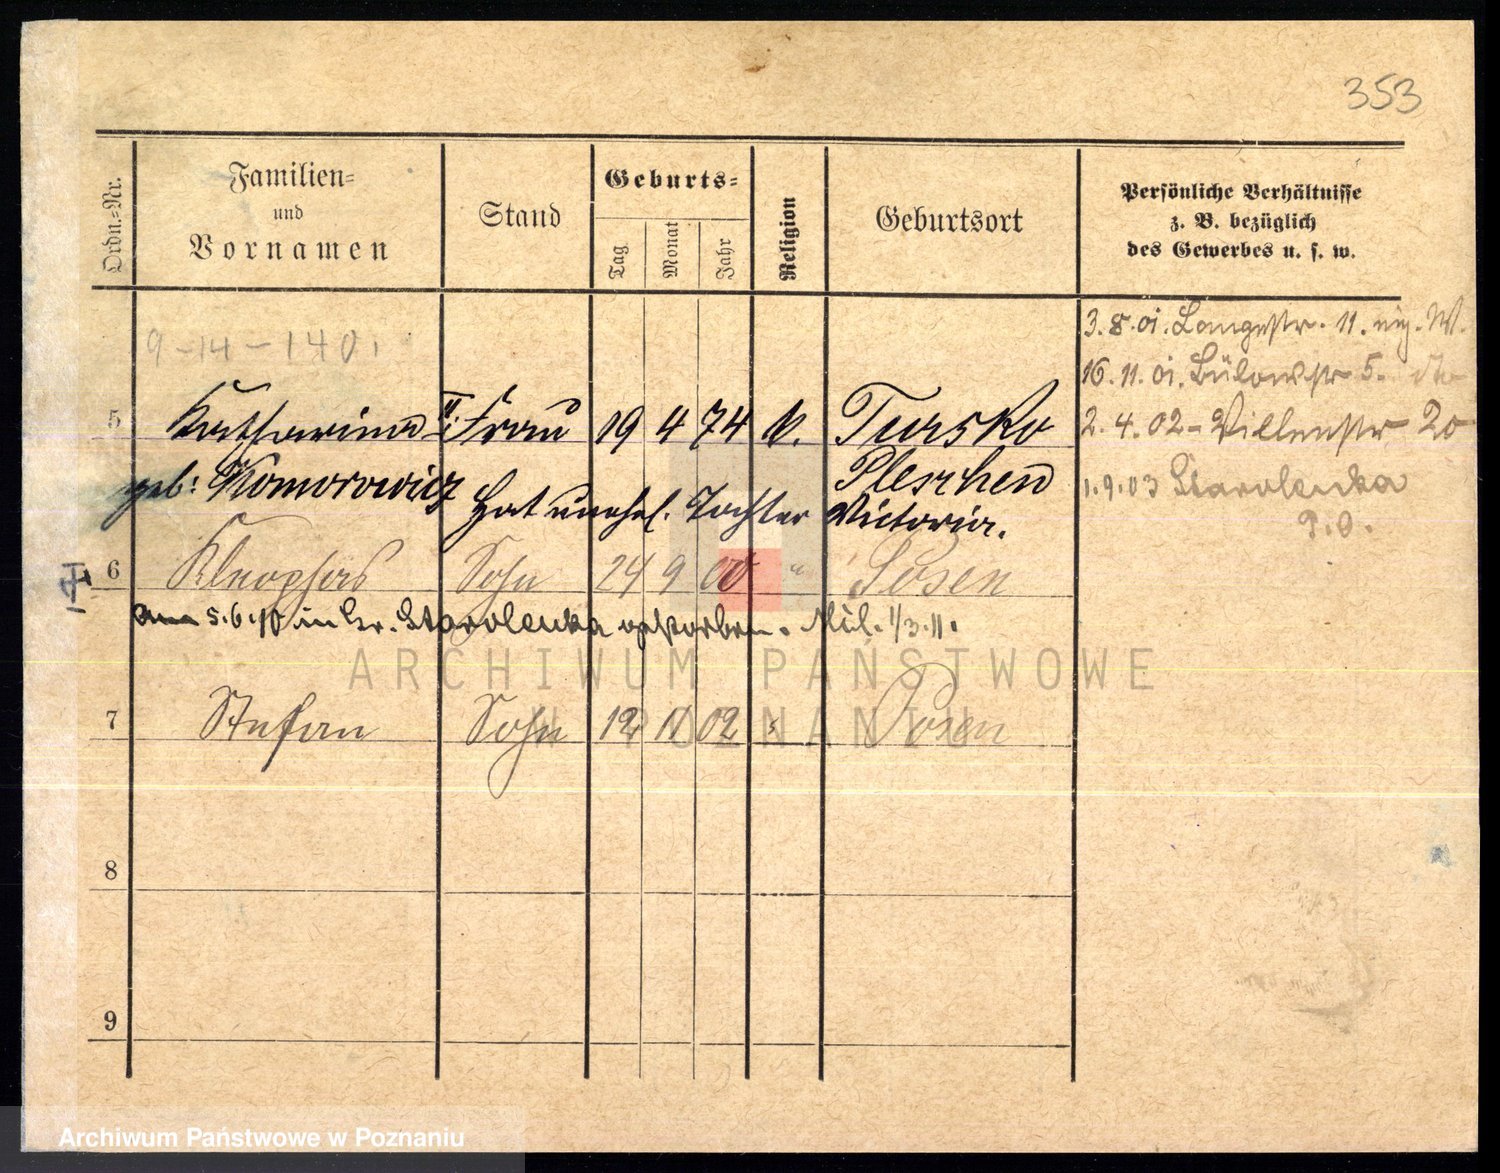 353
Ordn.-Nr.
Familien-
und
Vornamen
Stand
Geburts-
Tag
Monat
Jahr
Religion
Geburtsort
Persönliche Verhältnisse
z. B. bezüglich
des Gewerbes u. s. w.
9-14-1401
3.8.01. Langestr. 11.
16.11.01. Bülowstr 5. dto
5 Katharina II. Frau 19 4 74 k. Tursko
2.4.02 - Villenstr 20
geb: Komorowicz Pleschen
1.9.03 Starolenka
Hat unehel. Tochter Victoria.
9.0.
6 Kleophas Sohn 24 9 00 " Posen
am 5.6.10 in Gr. Starolenka gestorben. Mil. 1/3.11.
7 Stefan Sohn 12 11 02 " Posen
8
9
ARCHIWUM PAŃSTWOWE
W POZNANIU
Archiwum Państwowe w Poznaniu